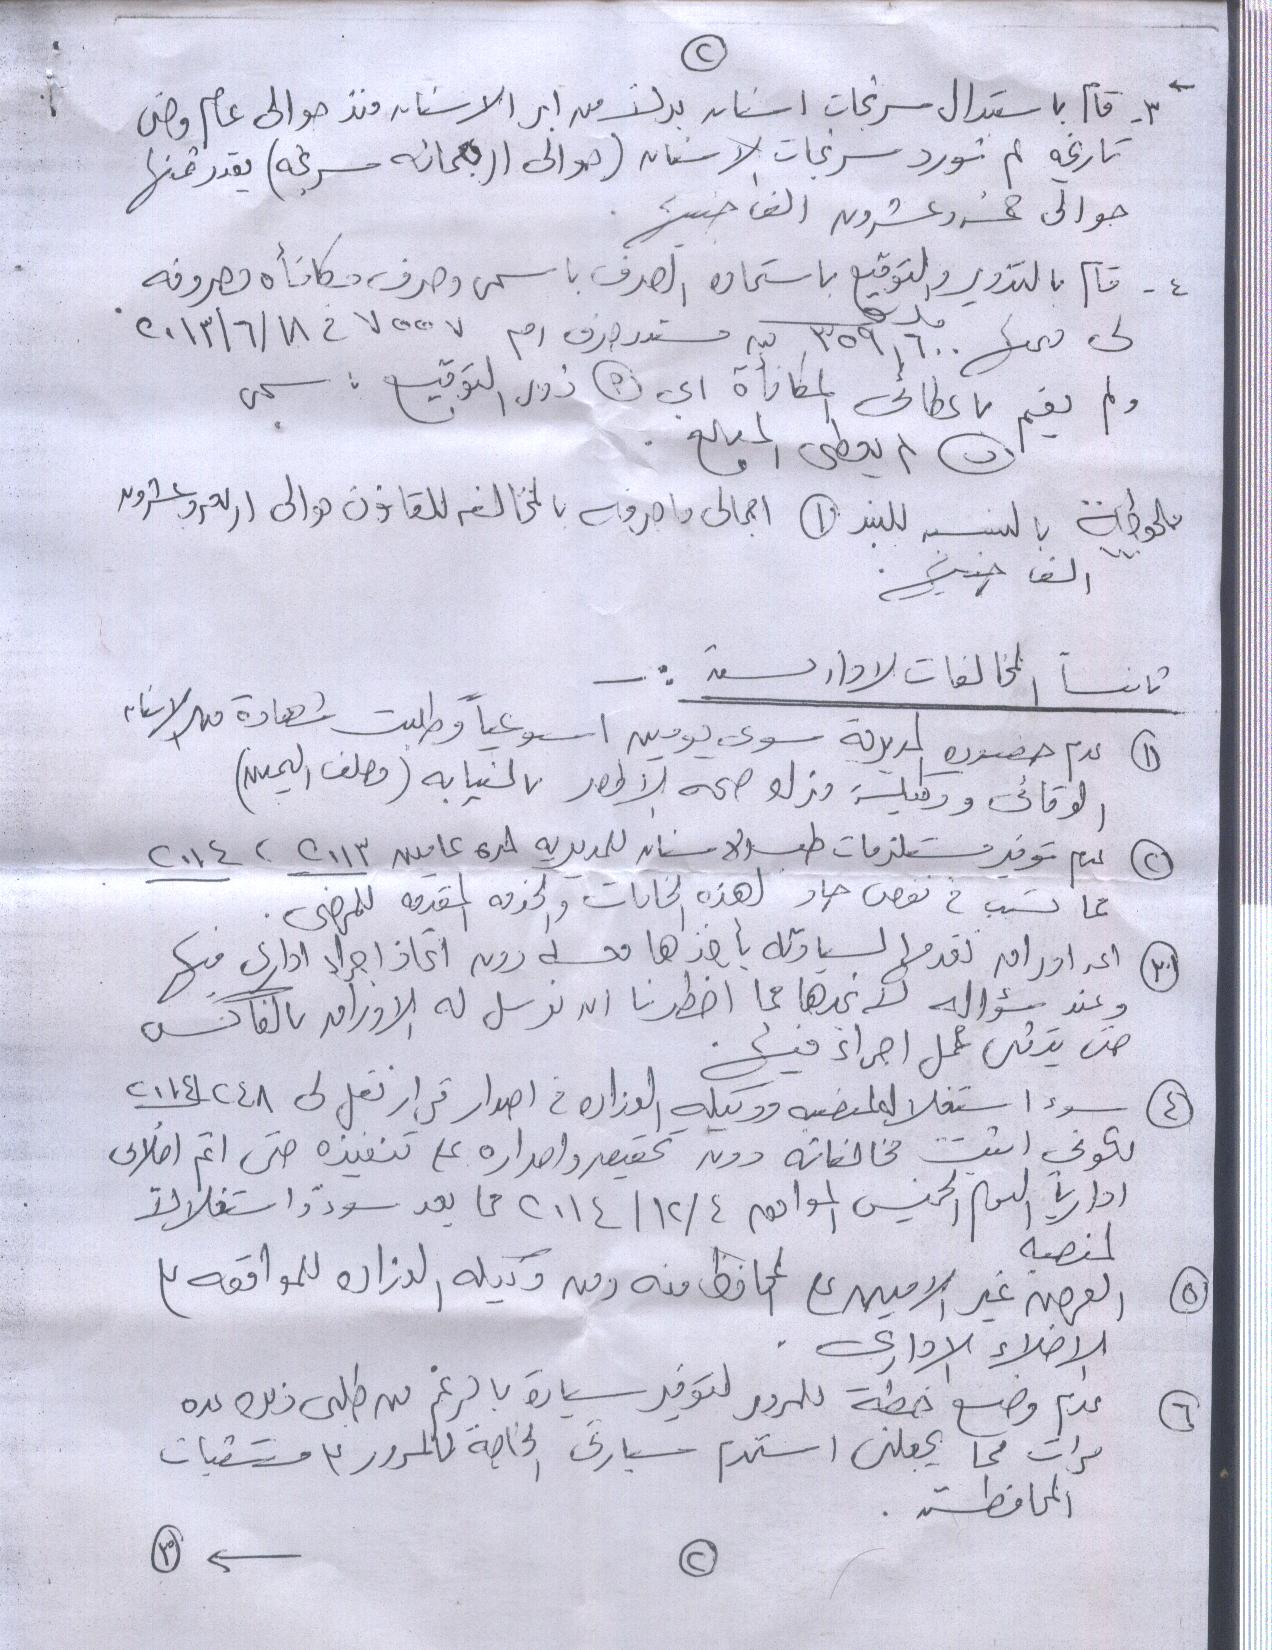 ٢
٣- قام باستبدال سرنجات اسنان بدلاً من ابر الاسنان منذ حوالى عام وحتى
تاريخه لم تورد سرنجات الاسنان (حوالى اربعمائه سرنجه) يقدر ثمنها
حوالى خمسه وعشرون الف جنيهاً .
٤- قام بالتزوير والتوقيع باستماره الصرف باسمى وصرف مكافأه مصروفه
لى قيمتها ٣٥٩,٦٠٠ مستند صرف رقم ٧٥٥٧ فى ٢٠١٣/٦/١٨
ولم يقم باعطائى المكافأة اى ① زور التوقيع باسمى
② لم يعطى المبلغ .
ملحوظة بالنسبه للبند ① اجمالى ماصرفه بالمخالفه للقانون حوالى اربعه وعشرون
الف جنيهاً .
ثانياً المخالفات الادارية :ـ
① عدم حضوره المديرية سوى يومين اسبوعياً وطلبت شهادة مدير الاسنان
الوقائى ووكيلة منزله صحه الأقصر بالنيابه (وحلف اليمين)
② عدم توفير مستلزمات طب الاسنان للمديريه لمدة عامين ٢٠١٣ ، ٢٠١٤
مما تسبب فى نقص حاد لهذه الخامات والخدمه المقدمه للمرضى .
③ اى اوراق نقدمها لسيادته يأخذها معه دون اتخاذ اجراء ادارى فيها
وعند سؤاله لا نجدها مما اضطرنا ان نرسل له الاوراق بالفاكس
حتى يتثنى عمل اجراء فيها .
④ سوء استغلاله لمنصبه ووكيله الوزاره فى اصدار قرار نقل لى ٢٤٨ / ٢٠١٤
لكونى اثبت مخالفاته دون تحقيق واصداره على تنفيذه حتى اتم اخلائى
ادارياً اليوم الخميس الموافق ٢٠١٤/١٢/٤ مما يعد سوءاً واستغلالاً
لمنصبه
⑤ العرض غير الامين على المحافظ منه ومن وكيله الوزاره للموافقه على
الاخلاء الادارى .
⑥ عدم وضع خطة للمرور لتوفير سيارة بالرغم من طلبى ذلك عده
مرات مما يجعلنى استخدم سيارتى الخاصة للمرور على مستشفيات
المحافظة .
٢
٣